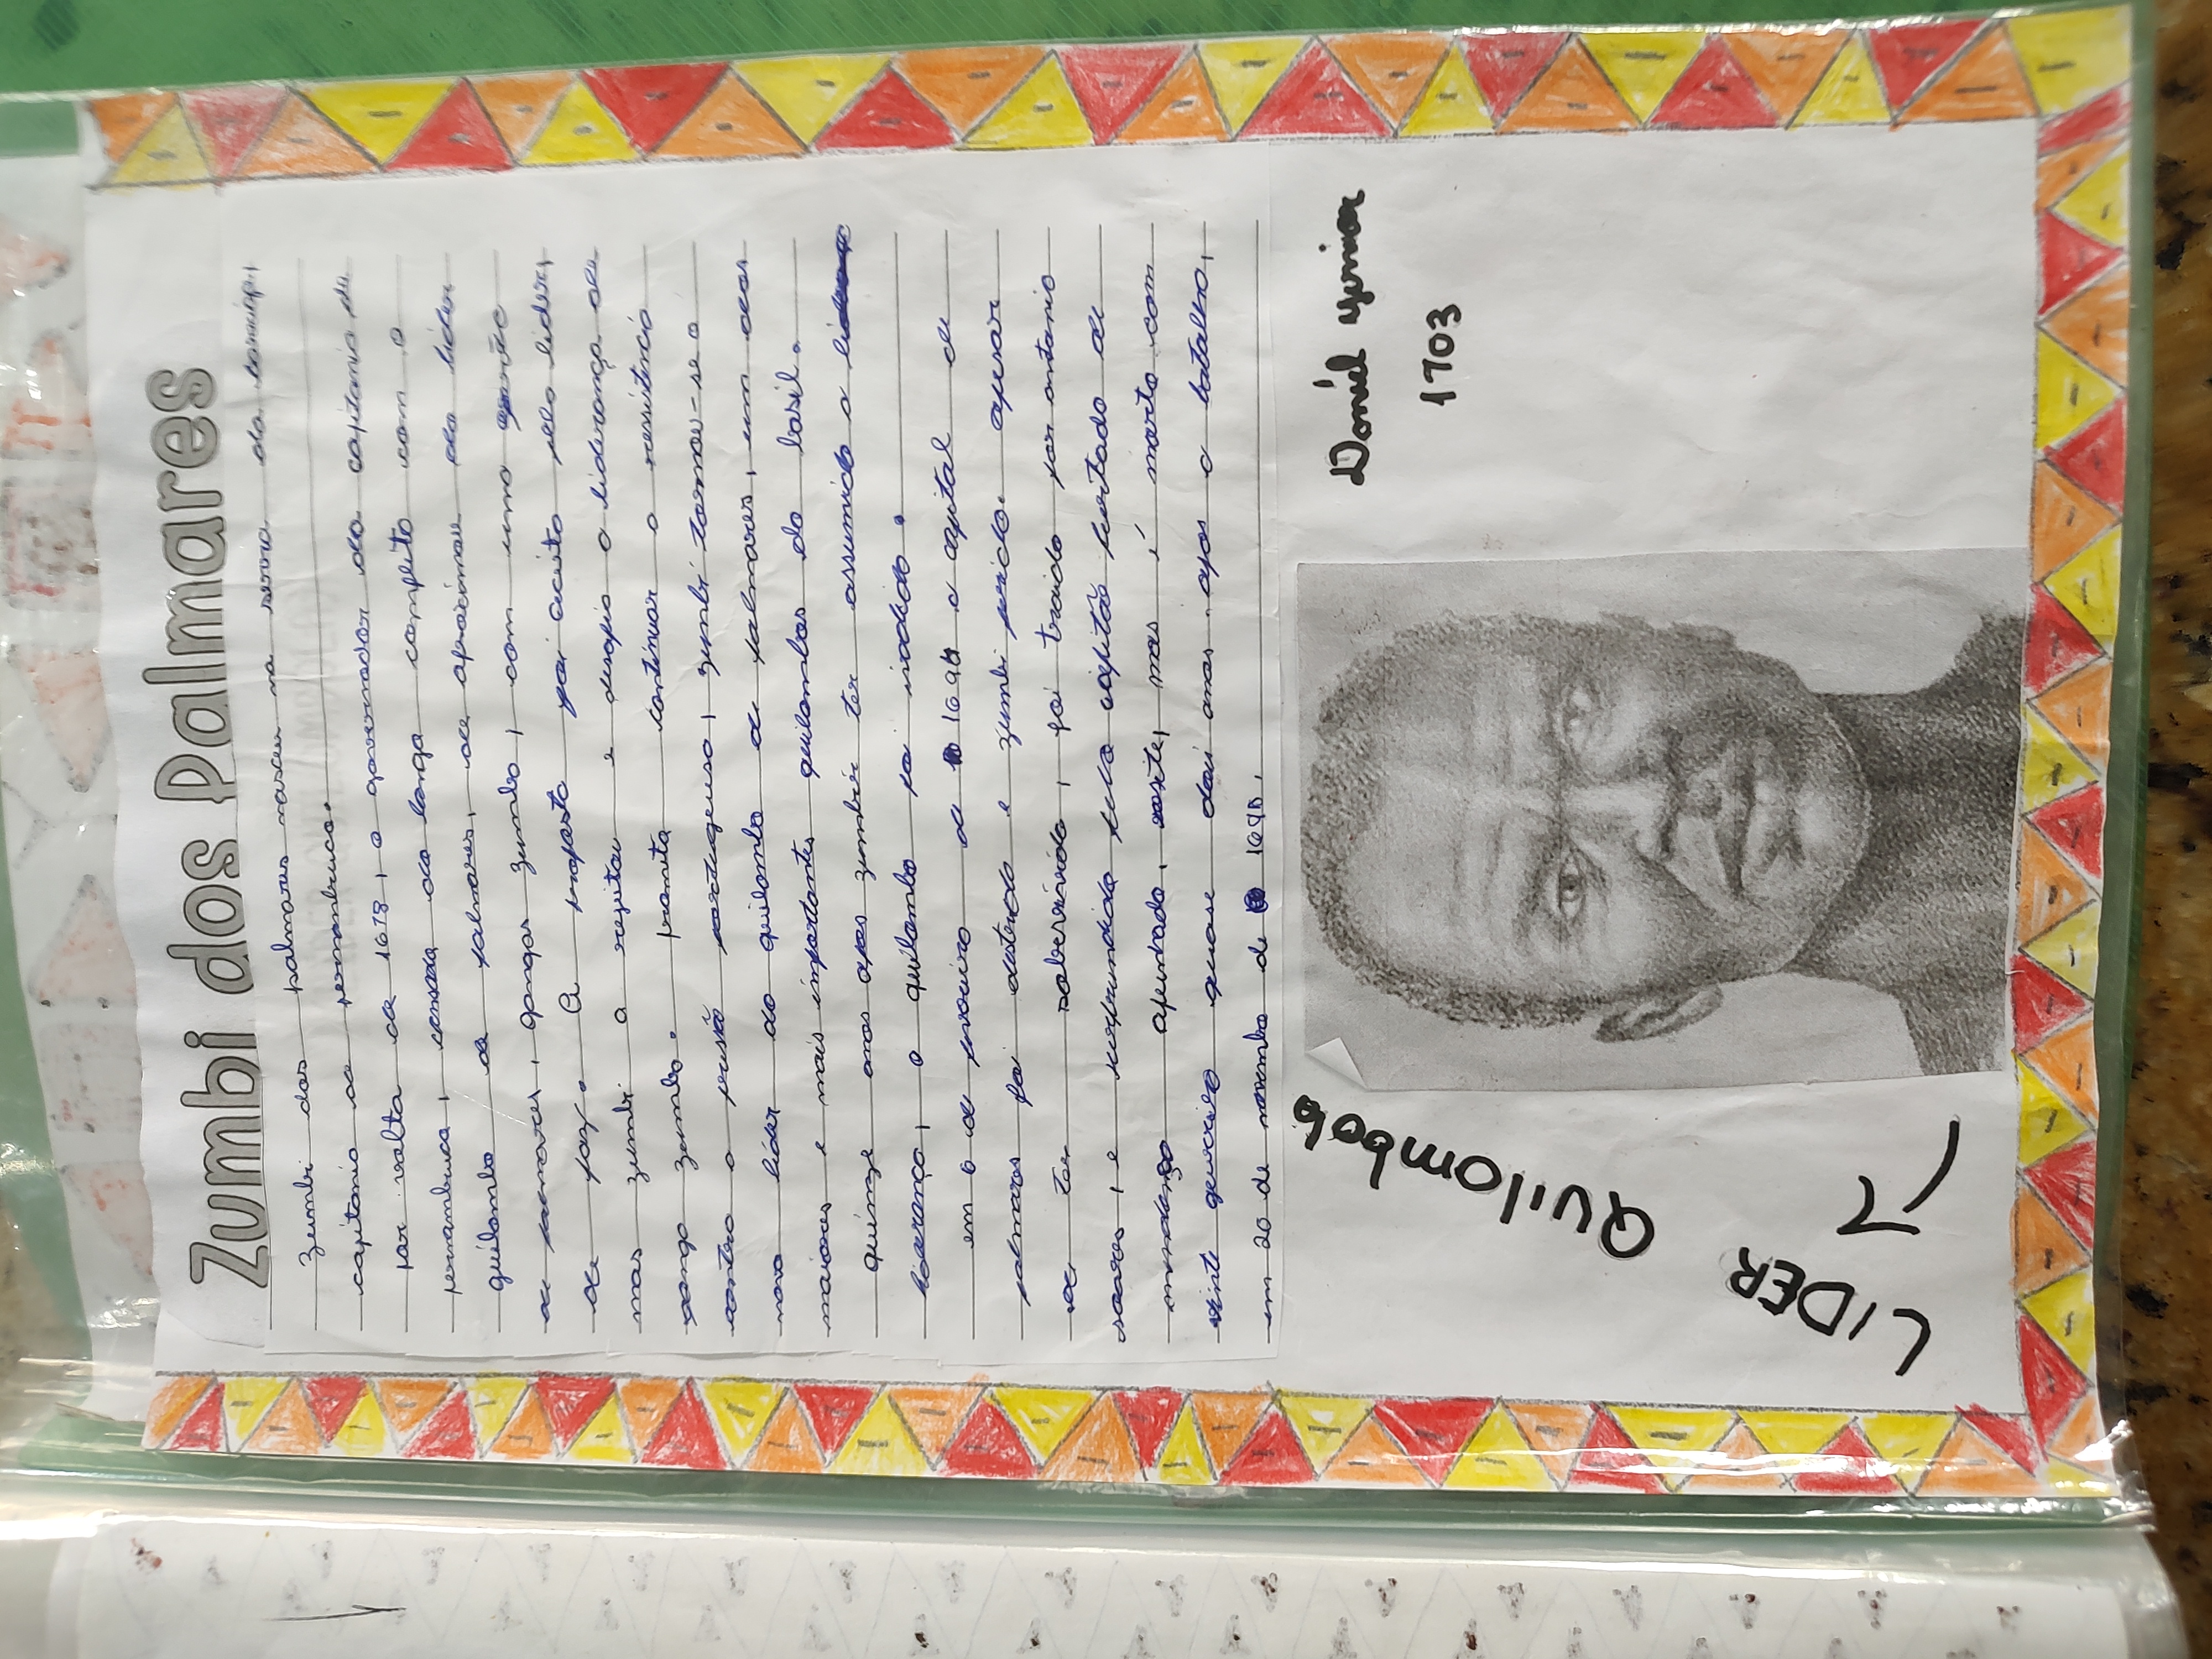 Zumbi dos Palmares
Zumbi dos palmares nasceu na serra da barriga,
capitania de pernambuco.
por volta de 1678, o governador da capitania de
pernambuco, cansado do longo conflito com o
quilombo de palmares, se aproximou do líder
de palmares, gangar zumbo, com uma
de paz. a proposta foi aceita pelo lider,
mas zumbi a rejeitou e desafio a liderança de
ganga zumba. promita continuar a resistência
contra a persão portuguesa, zumbi tornou-se o
novo líder do quilombo de palmares, um dos
maiores e mais importantes quilombos do brasil.
quinze anos apos zumbir ter assumido a
learança, o quilombo foi invadido.
em 6 de 1694 a capital de
palmares foi destruida e zumbi ferido. apesar
de ter sobrevivido, foi traido por antonio
soares, e pelo capitão furtado de
mendonça apunhado, resite, mas é morto com
vinte guerreiro quase dois anos apos a batalha,
em 20 de novembro de
Daniel yunior
1703
LIDER Quilombola